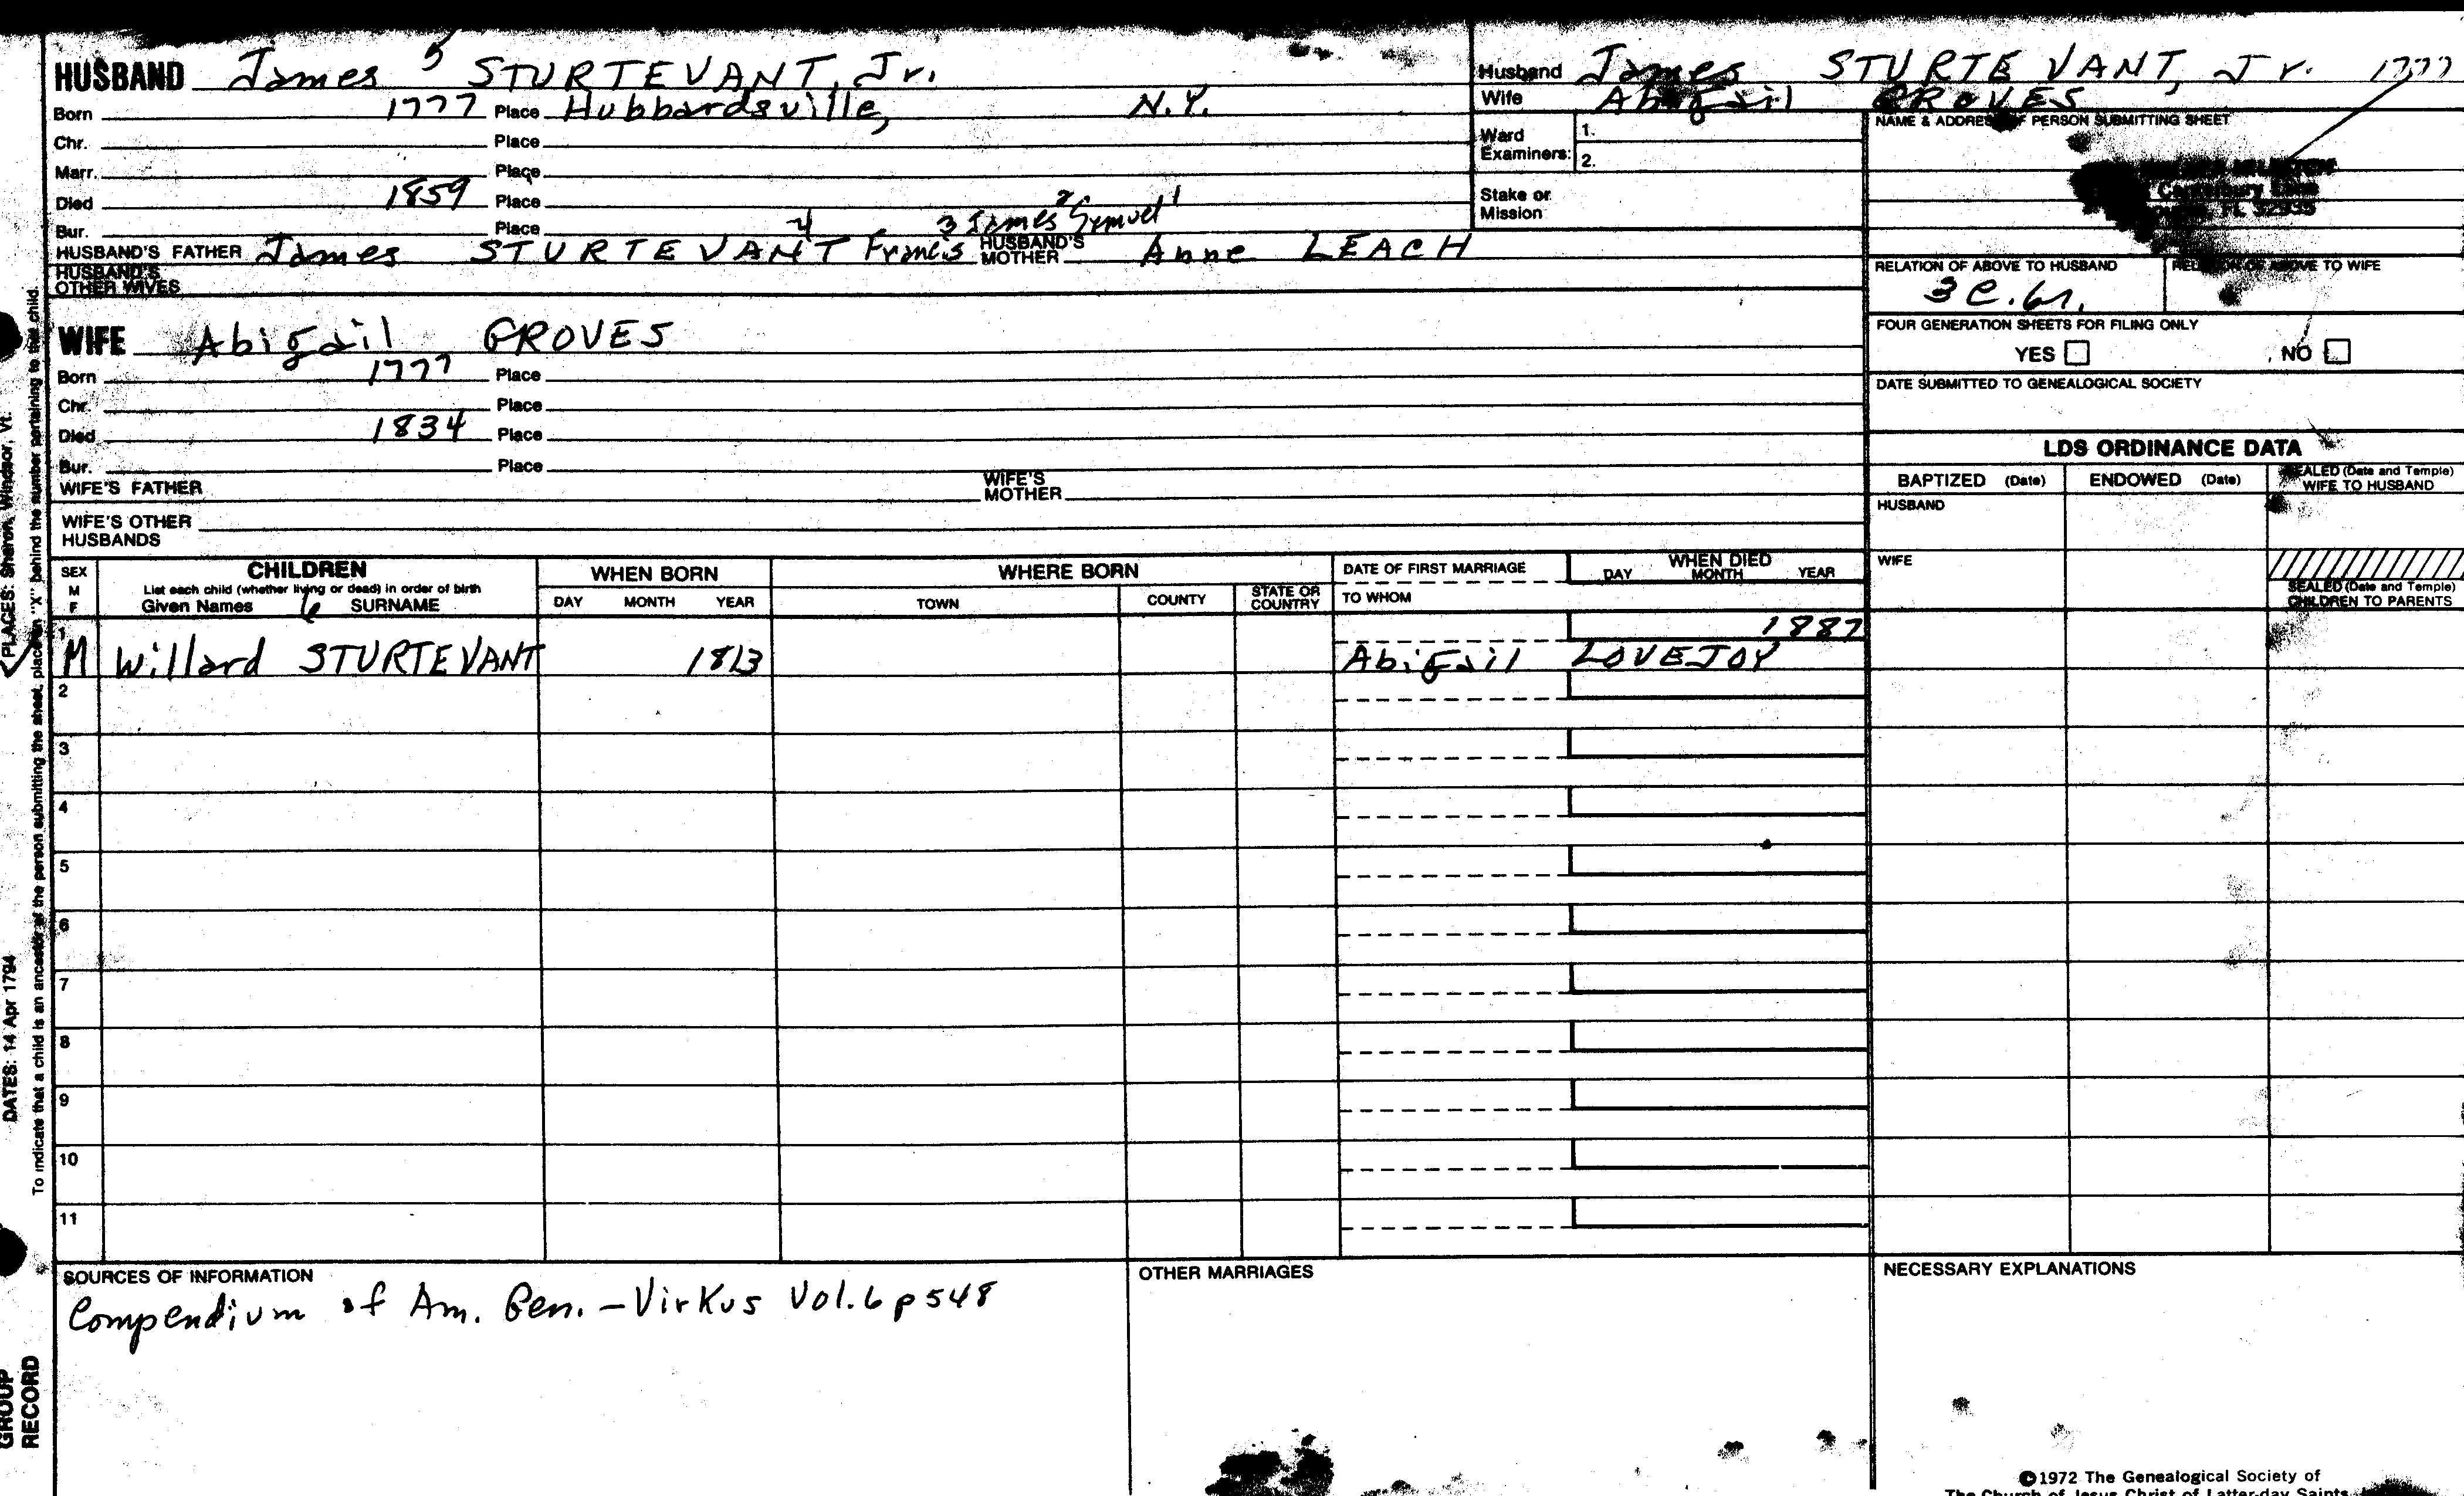 HUSBAND James 5 STURTEVANT, Jr.
Born 1777 Place Hubbardsville, N.Y.
Chr. Place
Marr. Place
Died 1859 Place
Bur. Place
4 3 James 2 Samuel 1
HUSBAND'S FATHER James STURTEVANT Francis HUSBAND'S MOTHER Anne LEACH
HUSBAND'S OTHER WIVES
WIFE Abigail GROVES
Born 1777 Place
Chr. Place
Died 1834 Place
Bur. Place
WIFE'S FATHER WIFE'S MOTHER
WIFE'S OTHER HUSBANDS
Husband James STURTEVANT, Jr. 1777
Wife Abigail GROVES
Ward Examiners: 1.
2.
Stake or Mission
NAME & ADDRESS OF PERSON SUBMITTING SHEET
Canterbury Lane
FL 32935
RELATION OF ABOVE TO HUSBAND RELATION OF ABOVE TO WIFE
3 C.6r.
FOUR GENERATION SHEETS FOR FILING ONLY
YES NO
DATE SUBMITTED TO GENEALOGICAL SOCIETY
LDS ORDINANCE DATA
BAPTIZED (Date) ENDOWED (Date) SEALED (Date and Temple) WIFE TO HUSBAND
HUSBAND
WIFE
SEALED (Date and Temple) CHILDREN TO PARENTS
SEX M F
CHILDREN
List each child (whether living or dead) in order of birth
Given Names 6 SURNAME
WHEN BORN
DAY MONTH YEAR
WHERE BORN
TOWN COUNTY STATE OR COUNTRY
DATE OF FIRST MARRIAGE
TO WHOM
WHEN DIED
DAY MONTH YEAR
1 1887
M Willard STURTEVANT 1813 Abigail LOVEJOY
2
3
4
5
6
7
8
9
10
11
SOURCES OF INFORMATION
Compendium of Am. Gen. - Virkus Vol. 6 p 548
OTHER MARRIAGES
NECESSARY EXPLANATIONS
©1972 The Genealogical Society of
The Church of Jesus Christ of Latter-day Saints
PLACES: Sharon, Windsor, Vt.
DATES: 14 Apr 1794
To indicate that a child is an ancestor of the person submitting the sheet, place an "X" behind the number pertaining to that child.
GROUP
RECORD